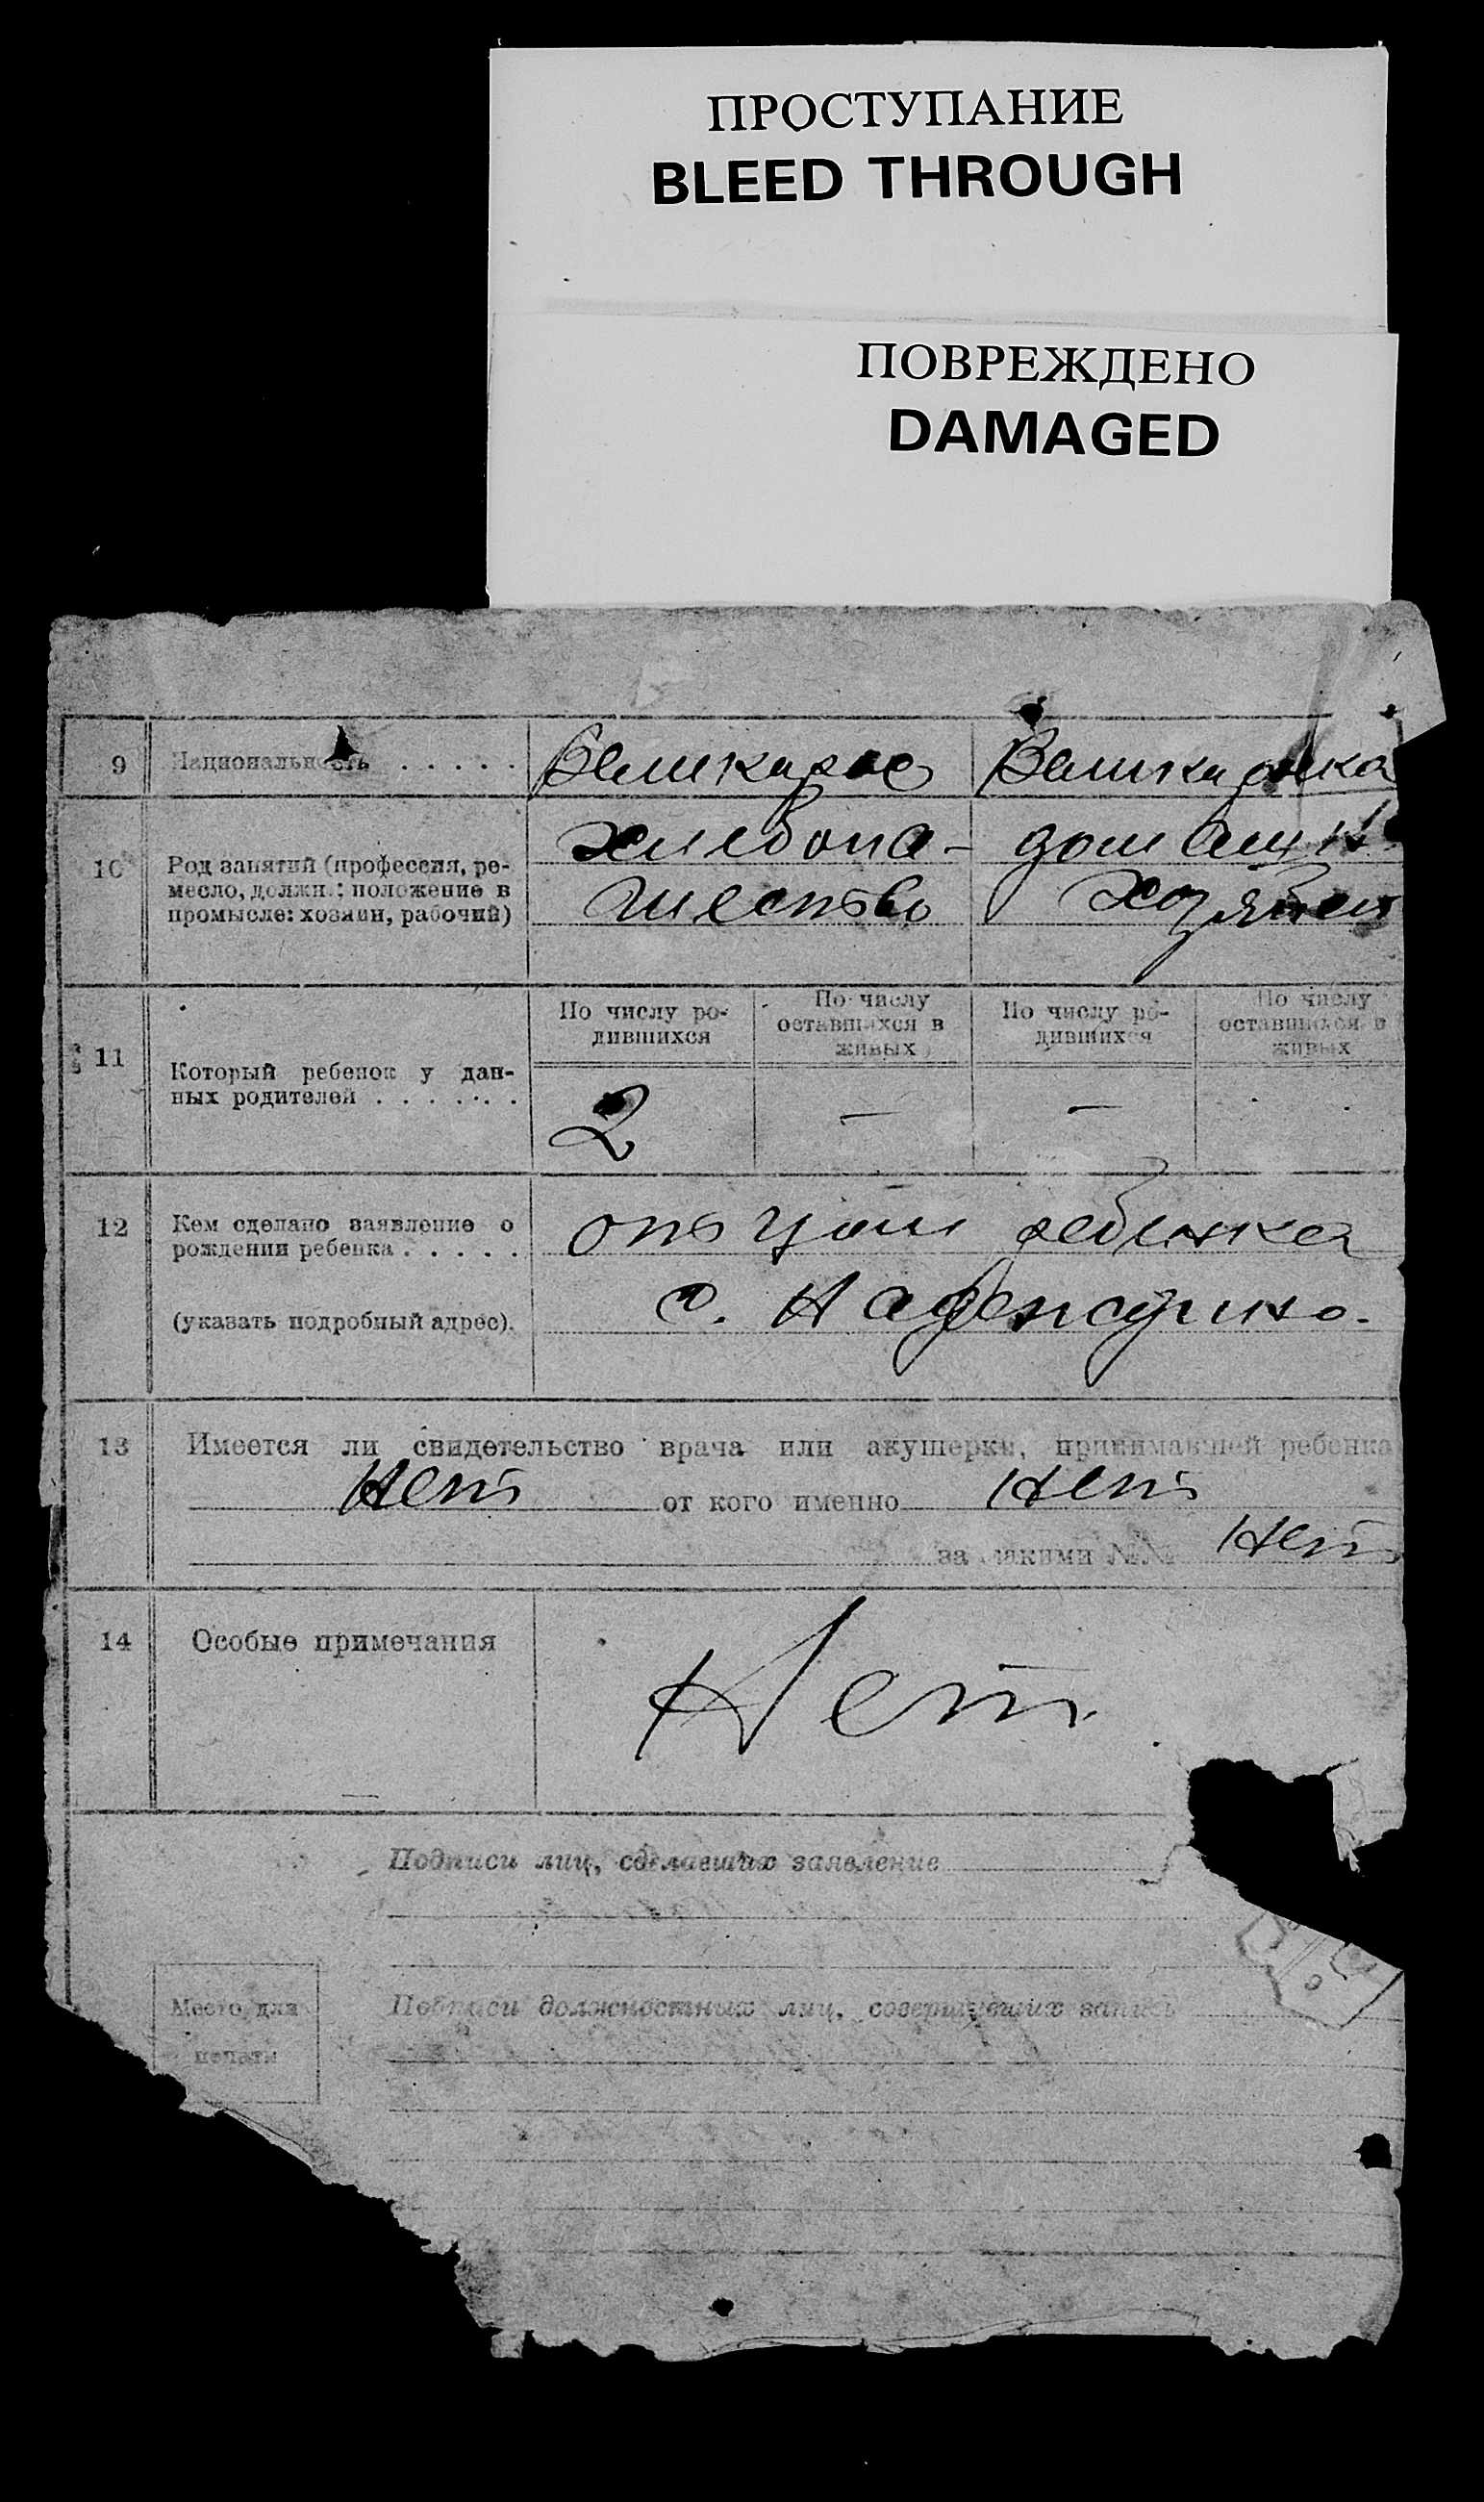 ПРОСТУПАНИЕ
BLEED THROUGH
ПОВРЕЖДЕНО
DAMAGED
9 Национальность . . . . . Великарос Великароска
10 Род занятий (профессия, ре-
месло, должн.; положение в
промысле: хозяин, рабочий)
хлебопа-
шество
домашн.
хозяйст
11 Который ребенок у дан-
ных родителей . . . . . . .
По числу ро-
дившихся
По числу
оставшихся в
живых
По числу ро-
дившихся
По числу
оставшихся в
живых
2 — —
12 Кем сделано заявление о
рождении ребенка . . . . .
(указать подробный адрес).
отцом ребенка
с.
13 Имеется ли свидетельство врача или акушерки, принимавшей ребенка
Нет от кого именно Нет
за какими №№ Нет
14 Особые примечания Нет.
Подписи лиц, сделавших заявление
Место для
печати
Подписи должностных лиц, совершивших запись